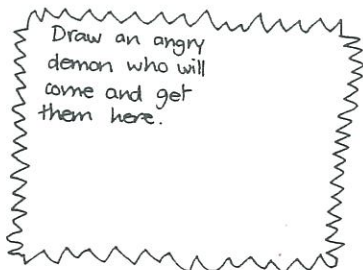 Draw an angry
demon who will
come and get
them here.